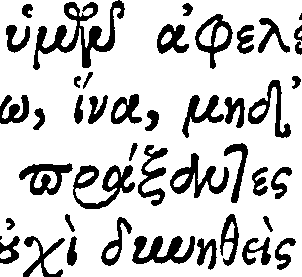 ὑμῶν ἀφελέ
ω, ἵνα, μηδ'
πράξαντες
ὐχὶ δυνηθεὶς